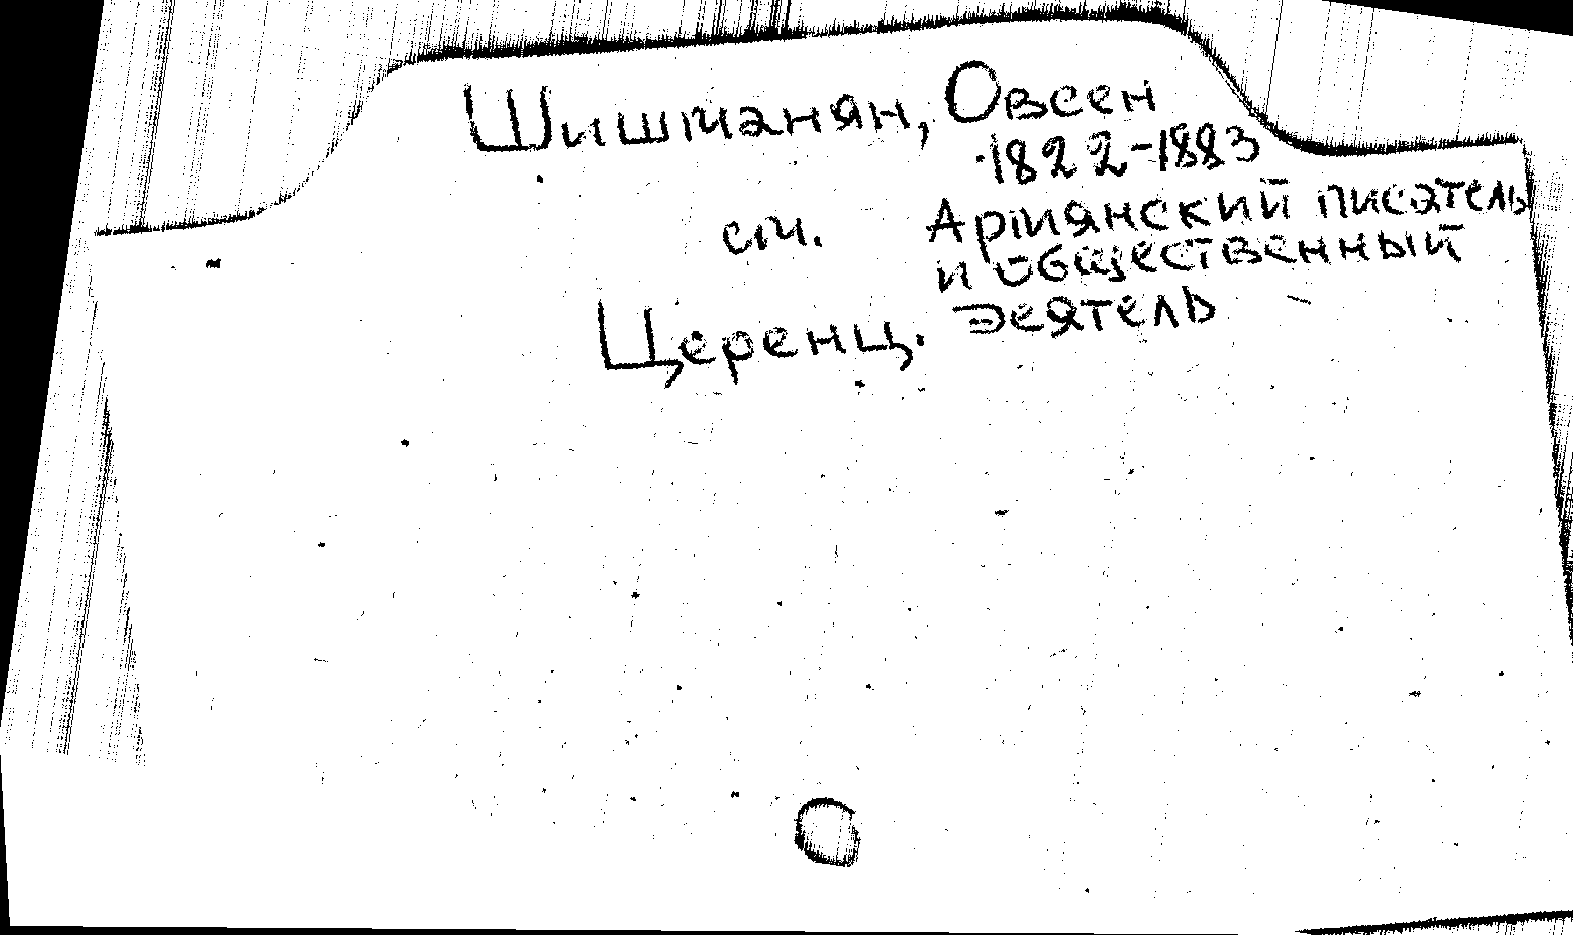 Шишманян, Овсен
1822-1883
см. Армянский писатель
и общественный
деятель
Церенц.